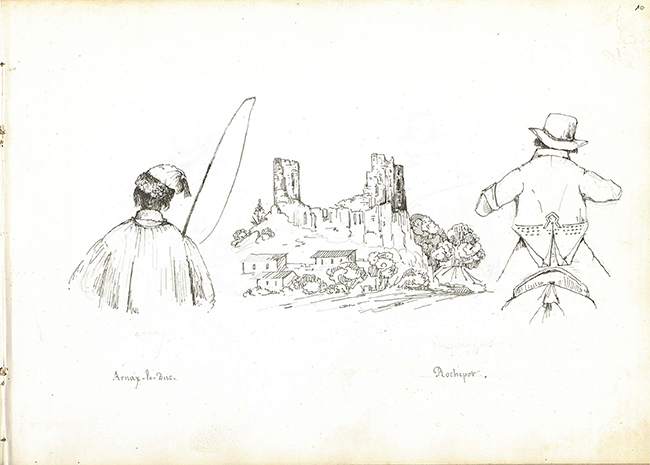 10
Arnay-le-Duc.
Rochepot.